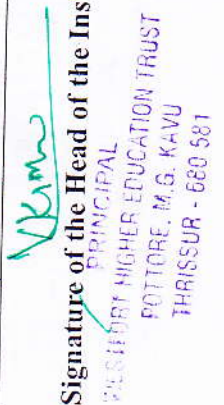 Signature of the Head of the Ins
PRINCIPAL
HIGHER EDUCATION TRUST
POTTORE, M.G. KAVU
THRISSUR - 680 581